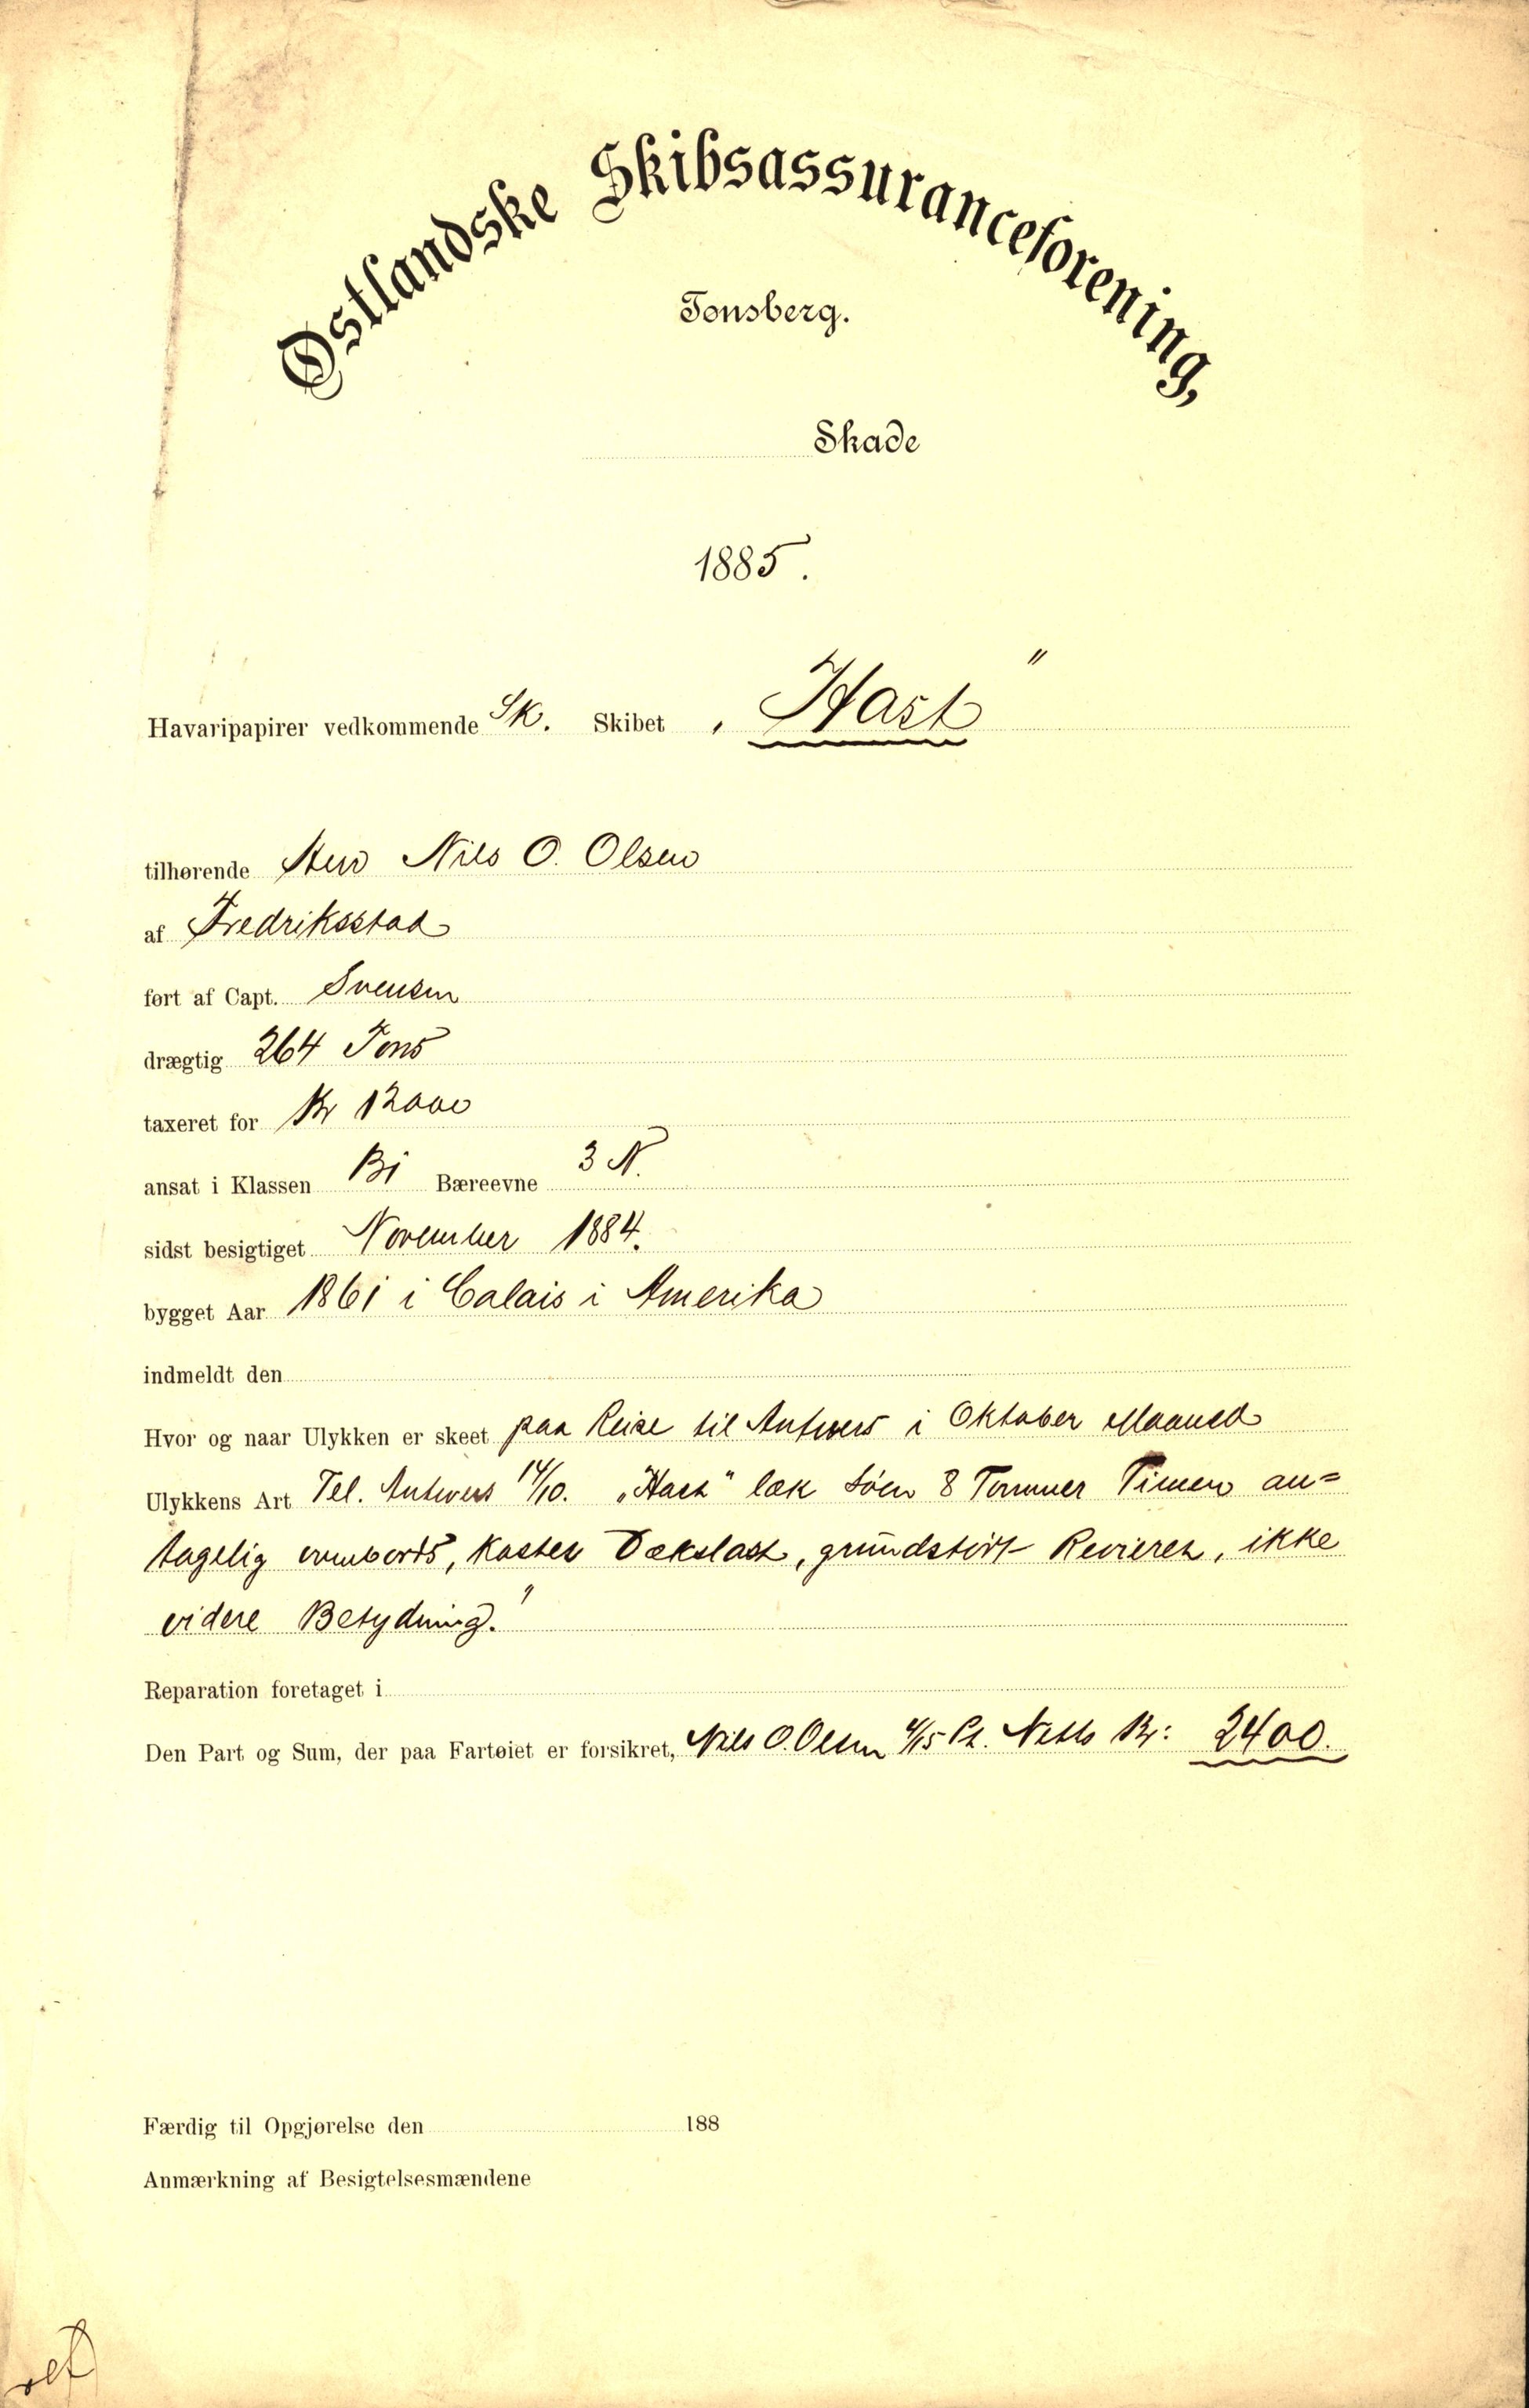 Østlandske Skibsassuranceforening,
Tønsberg.
Skade
1885.
Havaripapirer vedkommende Sk. Skibet „Hast"
tilhørende Herr Nils O. Olsen
af Fredriksstad
ført af Capt. Svensen
drægtig 264 Tons
taxeret for Kr 12000
ansat i Klassen B1 Bæreevne 3 N.
sidst besigtiget November 1884.
bygget Aar 1861 i Calais i Amerika
indmeldt den
Hvor og naar Ulykken er skeet paa Reise til Antwers i Oktober Maaned
Ulykkens Art Tel. Antwers 14/10. „Hast" læk Søen 8 Tommer Timen an=
tagelig ombords, kastet Dækslast, grundstødt Revieret, ikke
videre Betydning."
Reparation foretaget i
Den Part og Sum, der paa Fartøiet er forsikret, Nils O. Olsen 4/15 Pt. Netto Kr: 2400.
Færdig til Opgjørelse den 188
Anmærkning af Besigtelsesmændene